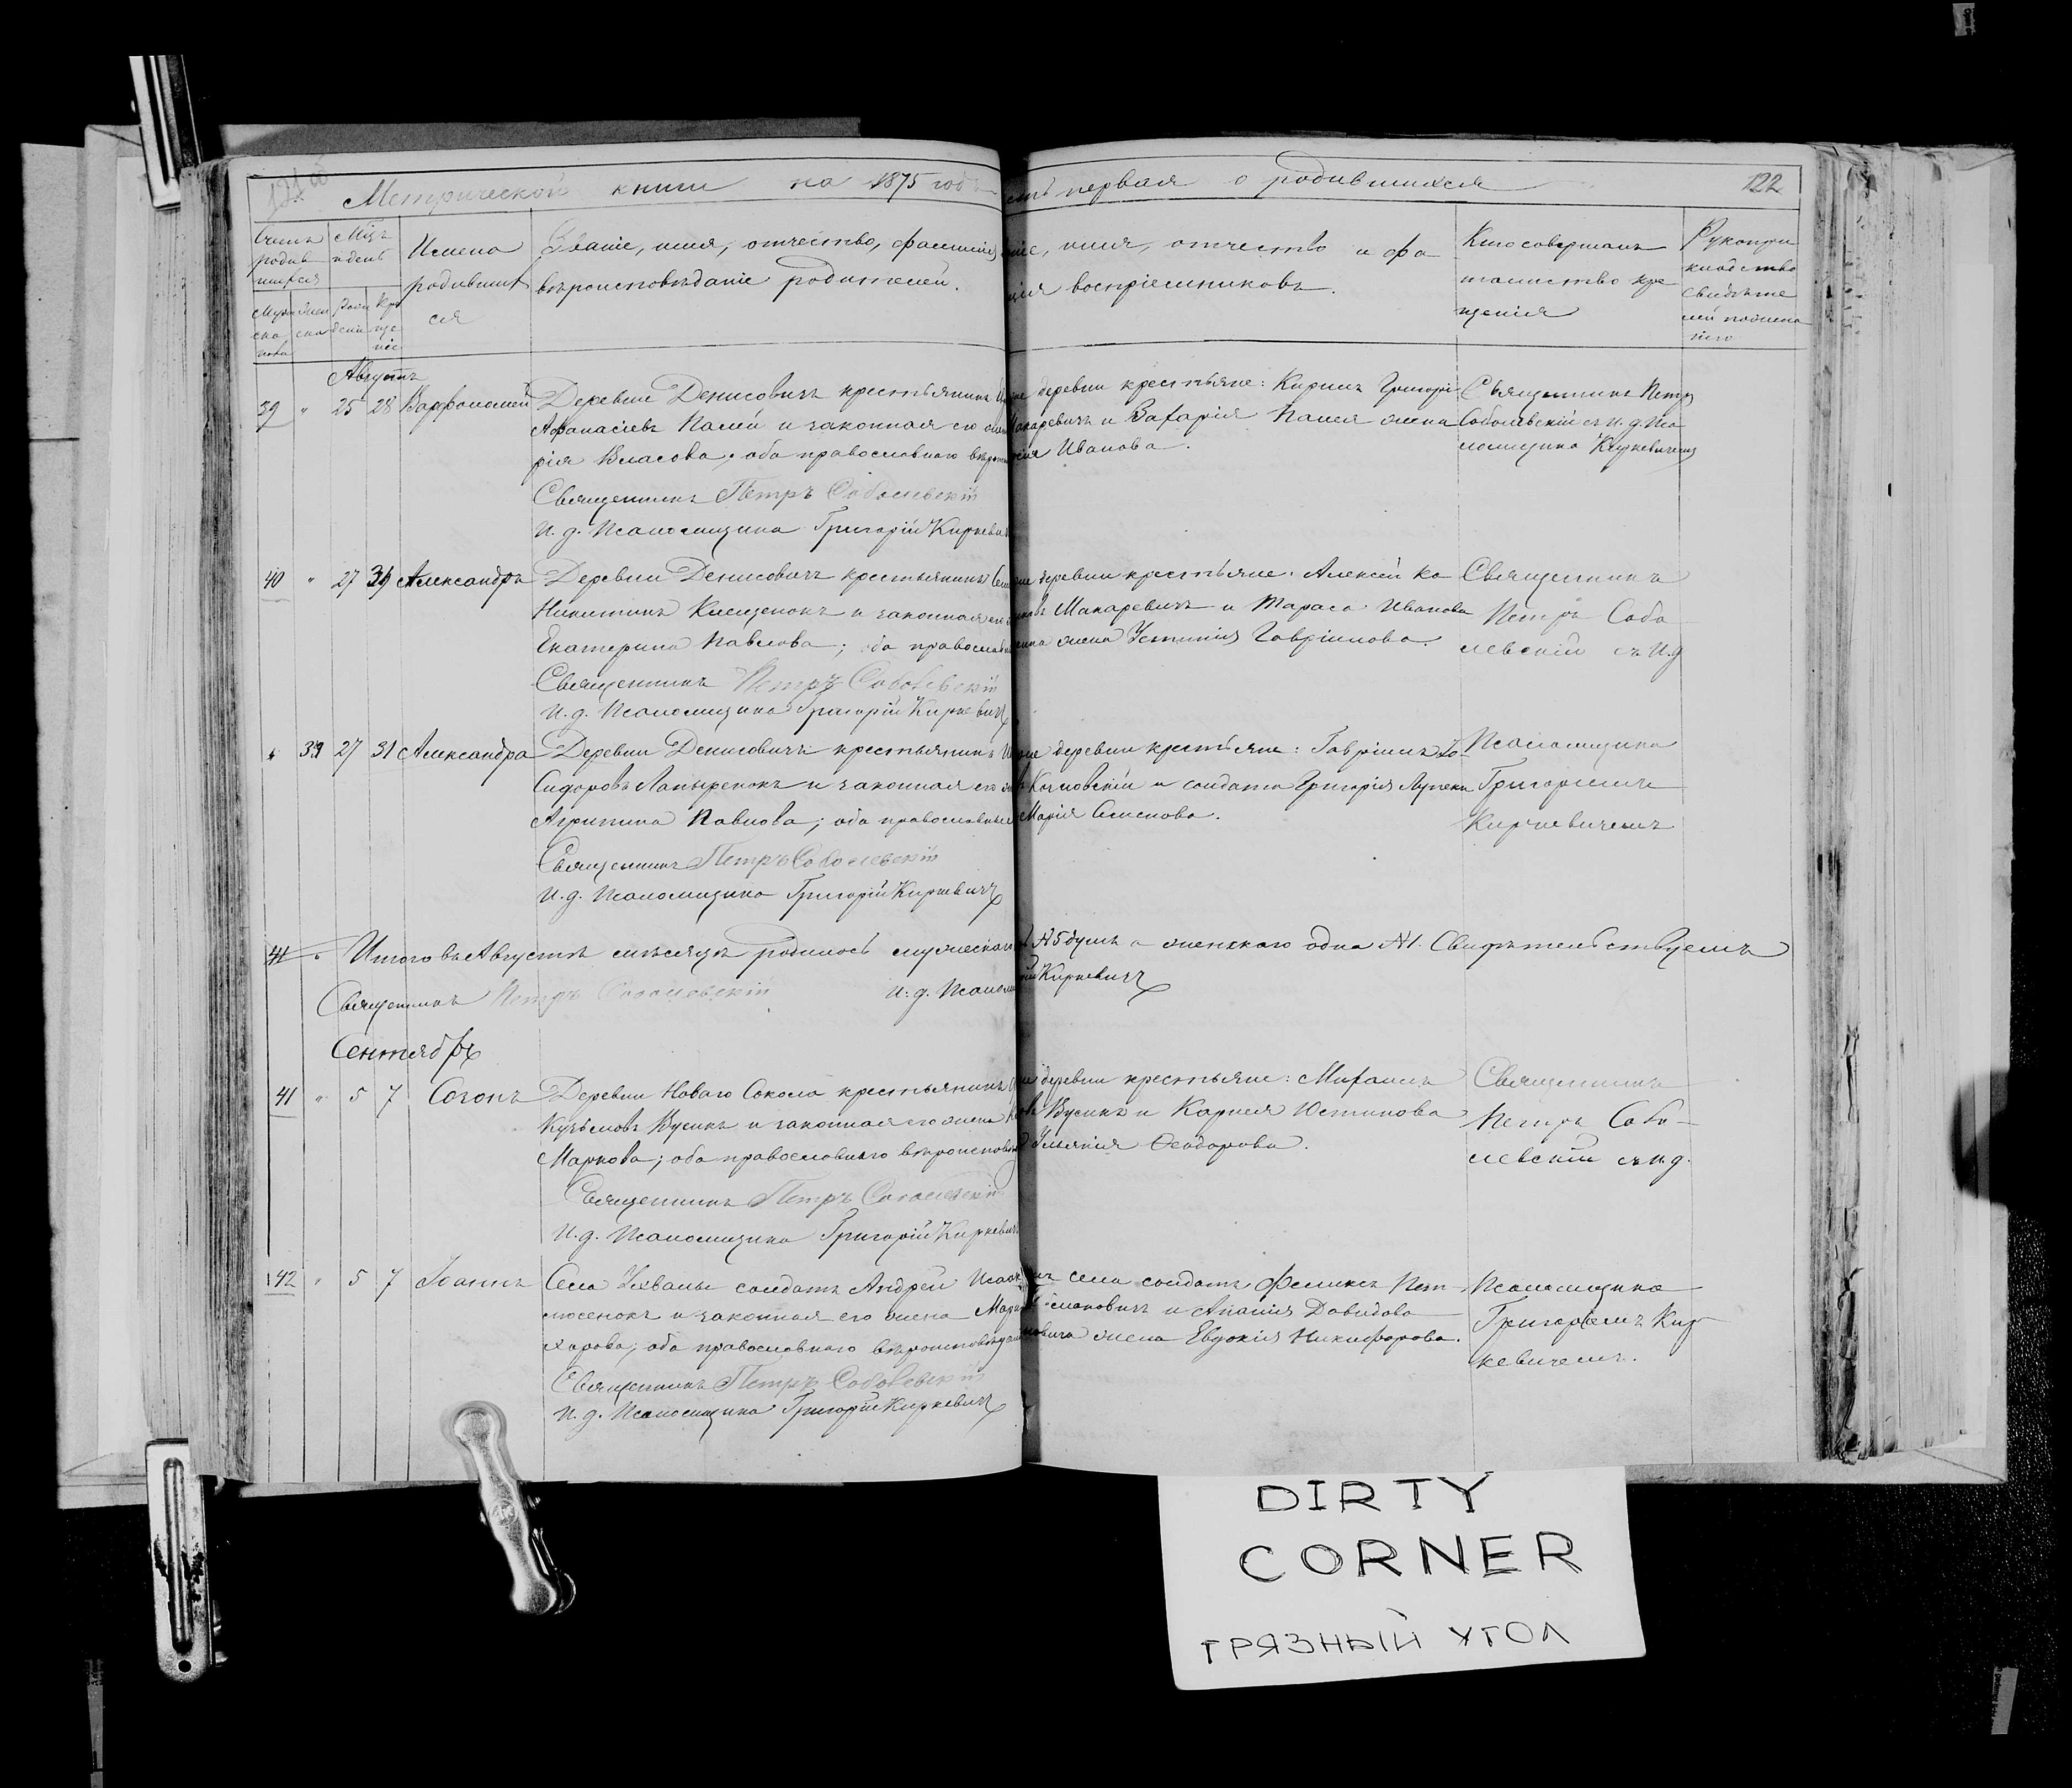 Метрической книги на 1875 годъ
сть первая о родившихся
122
Счетъ родив шихся
Мѣсяцъ и день
Имена родившихся
Званіе, имя, отчество, фамилія,
вѣроисповѣданіе родителей.
ніе, имя, отчество и фа
лія воспріемниковъ.
Кто совершалъ
таинство кре
щенія
Рукопри
кладство
свидѣте
лей
Августъ
39 " 25 28 Варфоломей
Деревни Денисовичъ крестьянинъ
Афанасіевъ Палей и законная его
рія Власова; оба православнаго
Священникъ Петръ Соболевскій
И. д. Псаломщика Григорій Киркевичъ
деревни крестьяне: Кириллъ Григорі
Макаревичъ и Захарія Палея жена
Иванова.
Священникъ Петръ
Соболевскій съ и. д. Пса
ломщика Киркевичемъ
40 " 27 31 Александръ
Деревни Денисовичъ крестьянинъ
Никитинъ Клещенокъ и законная его
Екатерина Павлова; оба православн
Священникъ Петръ Соболевскій
И. д. Псаломщика Григорій Киркевичъ
деревни крестьяне: Алексей
Макаревичъ и Тараса Иванова
жена Устинія Гавріилова.
Священникъ
Петръ Собо
левскій съ И.д
" 27 31 Александра
Деревни Денисовичъ крестьянинъ
Сидоровъ Лапыренокъ и законная его
Агрипина Павлова; оба православные
Священникъ Петръ Соболевскій
И. д. Псаломщика Григорій Киркевичъ
деревни крестьяне: Гавріилъ
и солдата Григорія
Марія Семенова.
Псаломщика
Григоріемъ
Киркевичемъ
Итого въ Августѣ мѣсяцѣ родилось мужескаго
№ 5 душъ а женскаго одна № 1. Свидѣтельствуемъ
Священникъ Петръ Соболевскій И. д. Псалом
Киркевичъ
Сентябрь
41 " 5 7 Созонъ
Деревни Новаго Сокола крестьянинъ
Кузьмовъ Бусикъ и законная его жена
Маркова; оба православнаго вѣроисповѣд
Священникъ Петръ Соболевскій
И. д. Псаломщика Григорій Киркевичъ
деревни крестьяне: Михаилъ
Бусикъ и Карнея Юстинова
Ульянія Ѳеодорова.
Священникъ
Петръ Собо-
левскій съ и.д.
42 " 5 7 Іоаннъ
Села Ухвалы солдатъ Андрей Исаак
и законная его жена
харова; оба православнаго вѣроисповѣдан
Священникъ Петръ Соболевскій
И. д. Псаломщика Григорій Киркевичъ
села солдатъ Феликсъ
и Ананія Давидова
жена Евдокія Никифорова.
Псаломщика
Григоріемъ Кир
кевичемъ.
DIRTY
CORNER
ГРЯЗНЫЙ УГОЛ